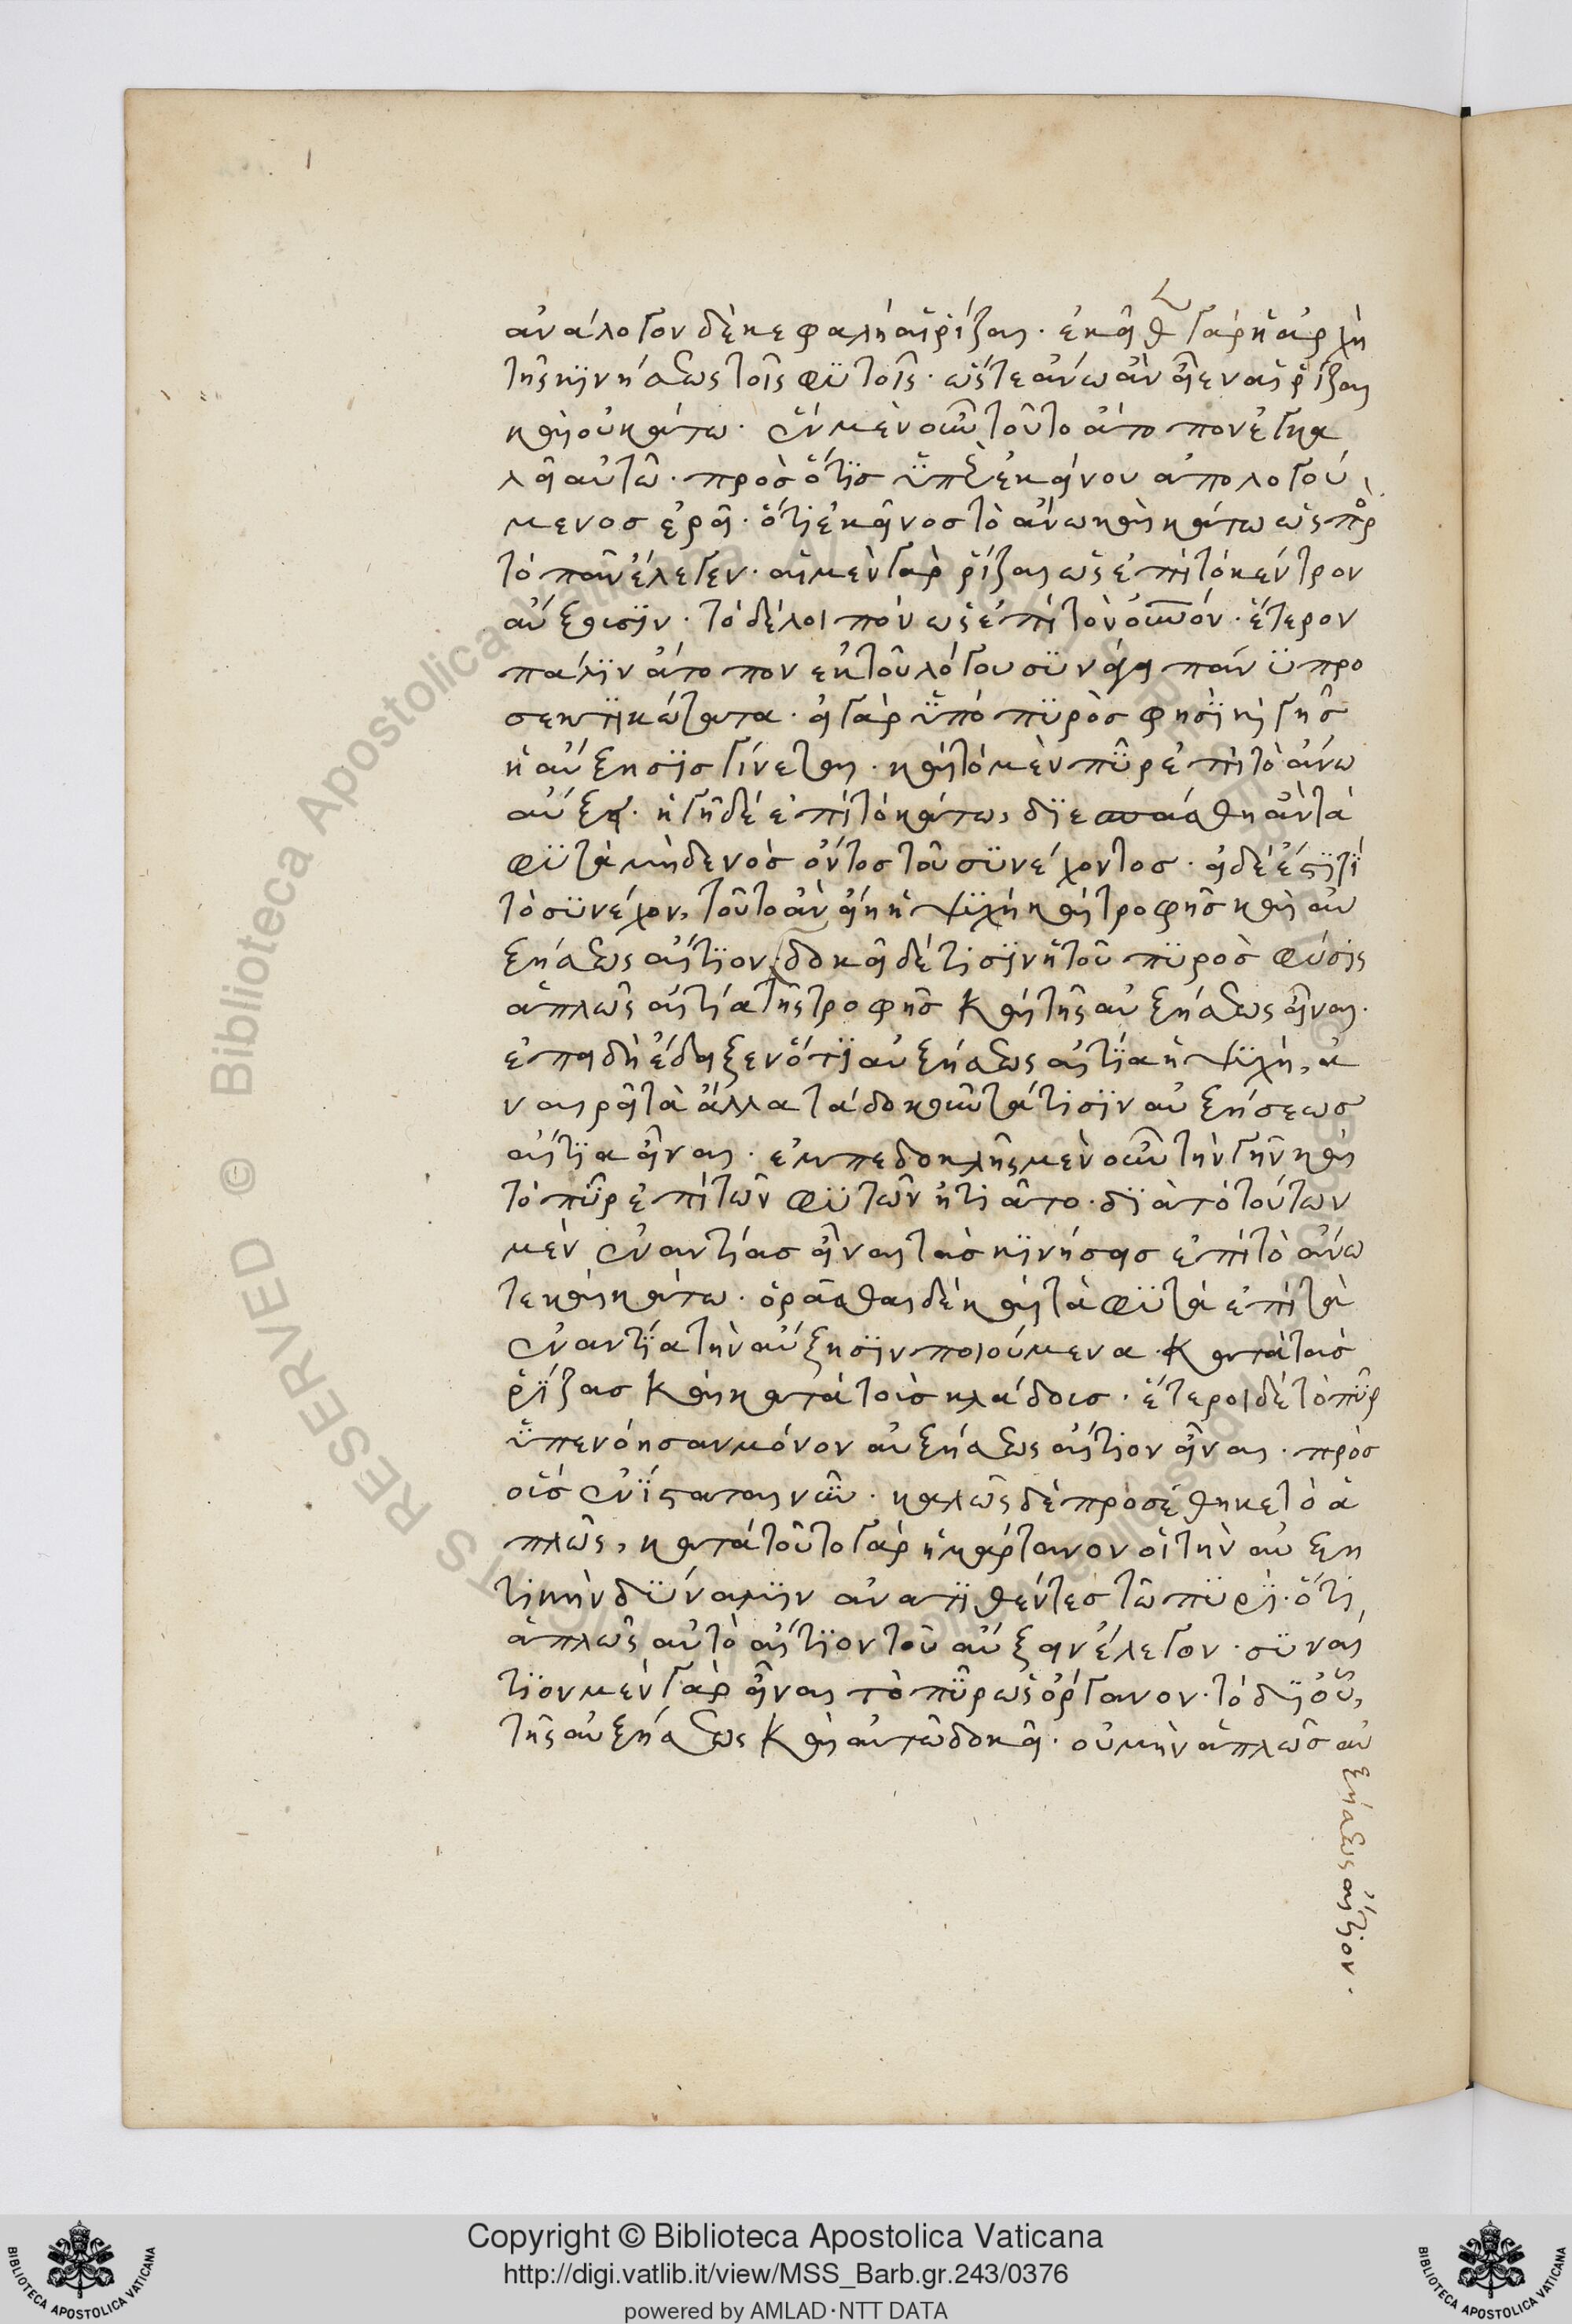 ἀνάλογον δὲ κεφαλῇ αἱ ῥίζαι· ἐκεῖθεν γὰρ ἡ ἀρχὴ
τῆς κϊνήσεως τοῖς φϋτοῖς· ὥστε ἄνω ἂν εἶεν αἱ ῥίζαι
καὶ οὐ κάτω· ἓν μὲν οὖν τοῦτο ἄτοπον ἐγκα
λεῖ αὐτῶ· πρὸς ὅ τϊς ϋπὲρ ἐκείνου ἀπολογού
μενος ἐρεῖ· ὅτι ἐκεῖνος τὸ ἄνω καὶ κάτω ὡς πρὸς
τὸ πᾶν ἔλεγεν· αἱ μὲν γὰρ ῥίζαι ὡς ἐπὶ τὸ κέντρον
αὔξουσϊν· τὸ δὲ λοιπὸν ὡς ἐπὶ τὸν οὐνόν· ἕτερον
πάλϊν ἄτοπον ἐκ τοῦ λόγου σϋνάγει πάνϋ προ
σεκτϊκώτατα· εἰ γὰρ ϋπὸ πϋρὸς φησϊ καὶ γῆς
ἡ αὔξησϊς γίνεται· καὶ τὸ μὲν πῦρ ἐπὶ τὸ ἄνω
αὔξει· ἡ γῆ δὲ ἐπὶ τὸ κάτω, δϊεσπάσθη ἂν τὰ
φϋτὰ μηδενὸς ὄντος τοῦ σϋνέχοντος· εἰ δὲ ἔστϊ τϊ
τὸ σϋνέχον, τοῦτο ἂν εἴη ἡ ψϋχὴ καὶ τροφῆς καὶ αὐ
ξήσεως αἴτϊον· δοκεῖ δέ τισϊν ἡ τοῦ πϋρὸς φύσϊς
ἁπλῶς αἰτία τῆς τροφῆς καὶ τῆς αὐξήσεως εἶναι·
ἐπειδὴ ἔδειξεν ὅτϊ αὐξήσεως αἰτϊα ἡ ψϋχὴ, ἀ
ναιρεῖ τὰ ἄλλα τὰ δοκοῦντά τισϊν αὐξήσεως
αἴτϊα εἶναι· ἐμπεδοκλῆς μὲν οὖν τὴν γῆν καὶ
τὸ πῦρ ἐπὶ τῶν φϋτῶν ἠτιᾶτο· δϊὰ τὸ τούτων
μὲν ἐναντίας εἶναι τὰς κϊνήσεις ἐπὶ τὸ ἄνω
τε καὶ κάτω· ὁρᾶσθαι δὲ καὶ τὰ φϋτὰ ἐπὶ τὰ
ἐναντϊα τὴν αὔξησϊν ποιούμενα κατὰ τὰς
ῥϊζας καὶ κατὰ τοὺς κλάδους· ἕτεροι δὲ τὸ πῦρ
ϋπενόησαν μόνον αὐξήσεως αἴτιον εἶναι· πρὸς
οὓς ἐνΐσταται νῦν· καλῶς δὲ προσέθηκε τὸ ἁ
πλῶς, κατὰ τοῦτο γὰρ ἡμάρτανον οἱ τὴν αὐξη
τικὴν δϋναμϊν ἀνατϊθέντες τῶ πϋρϊ· ὅτι
ἁπλῶς αὐτὸ αἴτϊον τοῦ αὔξειν ἔλεγον· σϋναί
τϊον μὲν γὰρ εἶναι τὸ πῦρ ὡς ὄργανον· τὸ δϊ οὗ,
τῆς αὐξήσεως καὶ αὐτῶ δοκεῖ· οὐ μὴν ἁπλῶς αὐ
ξήσεως αἴτιον·
Copyright © Biblioteca Apostolica Vaticana
http://digi.vatlib.it/view/MSS_Barb.gr.243/0376
powered by AMLAD·NTT DATA